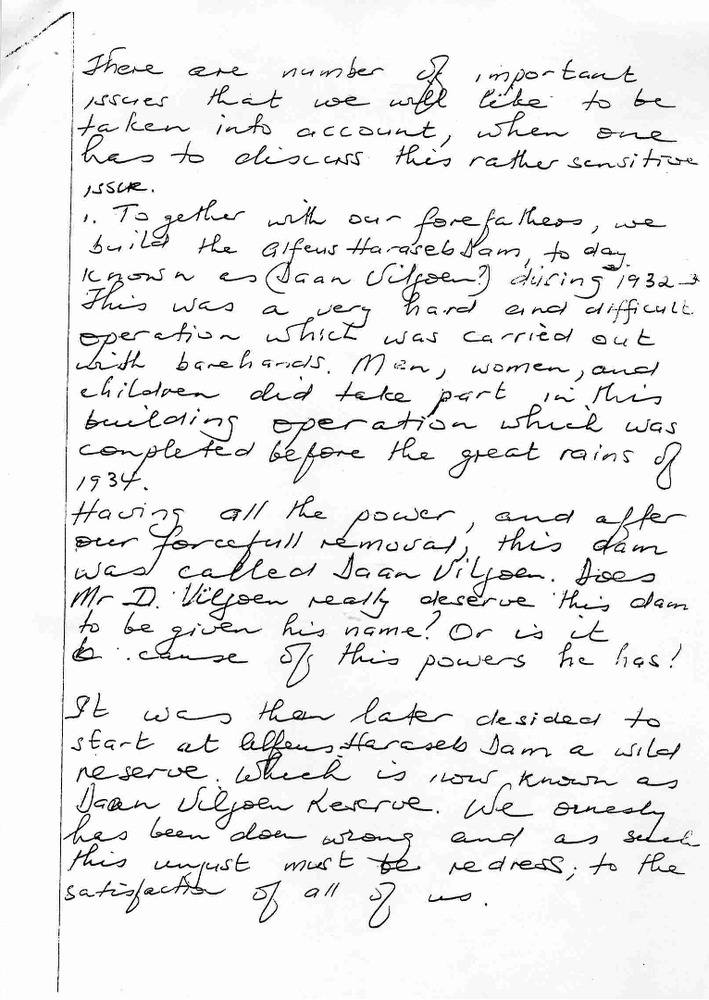 There are number of important
issues that we will like to be
taken into account, when one
has to discuss this rather sensitive
issue.
1. Together with our forefathers, we
build the Alfeus Haraseb Dam, to day
known as (Daan Viljoen?) during 1932
This was a very hard and difficult
operation which was carried out
with barehands. Men, women, and
children did take part in this
building operation which was
completed before the great rains of
1934.
Having all the power, and after
our forcefull removal, this dam
was called Daan Viljoen. Does
Mr D. Viljoen really deserve this dam
to be given his name? Or is it
b cause of this powers he has!
It was then later desided to
start at Alfeus Haraseb Dam a wild
reserve. Which is now known as
Daan Viljoen Reserve. We
has been don wrong and as such
this unjust must be redress; to the
satisfaction of all of us.